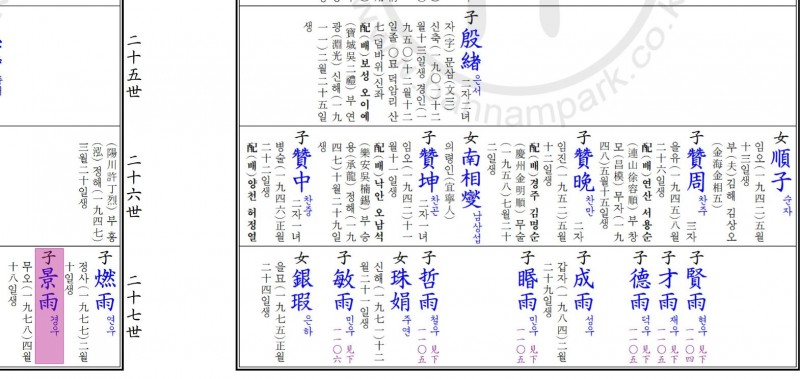 二十五世
子殷緖 은서 二자二녀
자(字)문삼(文三)
신축(一九〇一)十二
월十三일생 경인(一
九五〇)十二월十二
일졸〇묘 덕암리 산
七(덤바위)신좌
配(배)보성 오이예
(寶城吳二禮) 부 연
광(淵光) 신해(一九
一一)二월二十五일
생
二十六世
女順子 순자
임오(一九四二)五월
十三일생
부(夫)김해 김상오
(金海金相五)
子贊周 찬주 三자
을유(一九四五)八월
二十六일생
配(배)연산 서용순
(連山徐容順) 부 창
모(昌模) 무자(一九
四八)五월十五일생
子贊晩 찬만 二자
임진(一九五二)七월
十二일생
配(배)경주 김명순
(慶州金明順) 무술
(一九五八)七월二十
二일생
女南相燮 남상섭
의령인(宜寧人)
子贊坤 찬곤 二자一녀
임오(一九四二)十一
월十一일생
配(배)낙안 오남석
(樂安吳楠錫) 부 승
용(承龍) 정해(一九
四七)十월二十九일
생
子贊中 찬중 二자一녀
병술(一九四六)正월
二十二일생
配(배)양천 허정열
(陽川許丁烈) 부 홍
(泓) 정해(一九四七)
三월二十일생
二十七世
子賢雨 현우 見下 一一〇四
子才雨 재우 見下 一一〇五
子德雨 덕우 見下 一一〇五
子成雨 성우
갑자(一九八四)二월
二十九일생
子暋雨 민우 見下 一一〇五
子哲雨 철우 見下 一一〇五
女珠娟 주연
신해(一九七一)十二
월二十一일생
子敏雨 민우 見下 一一〇六
女銀瑕 은하
을묘(一九七五)正월
二十四일생
子燃雨 연우
정사(一九七七)二월
十일생
子景雨 경우
무오(一九七八)四월
十八일생